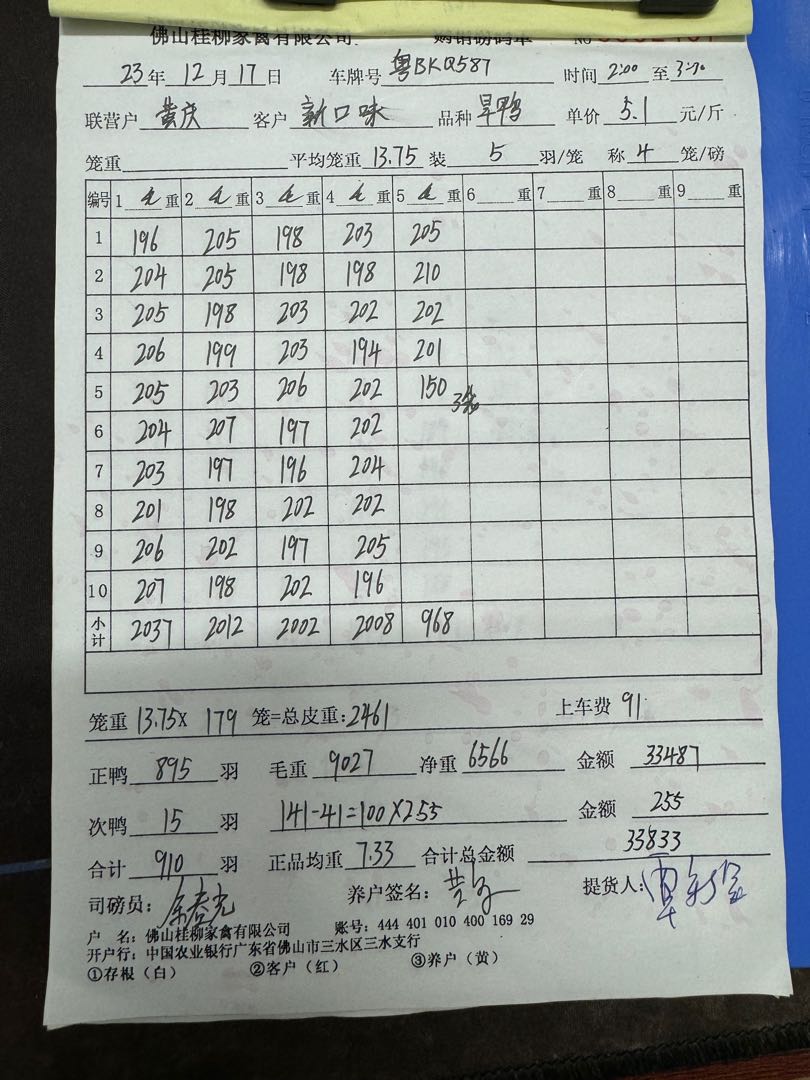 佛山桂柳家禽有限公司 购销磅码单 No
23年 12月 17日 车牌号 粤BKQ587 时间 2:00 至 3:10
联营户 黄庆 客户 新口味 品种 旱鸭 单价 5.1 元/斤
笼重 平均笼重 13.75 装 5 羽/笼 称 4 笼/磅
编号 1 毛 重 2 毛 重 3 毛 重 4 毛 重 5 毛 重 6 重 7 重 8 重 9 重
1 196 205 198 203 205
2 204 205 198 198 210
3 205 198 203 202 202
4 206 199 203 194 201
5 205 203 206 202 150 3笼
6 204 207 197 202
7 203 197 196 204
8 201 198 202 202
9 206 202 197 205
10 207 198 202 196
小计 2037 2012 2002 2008 968
笼重 13.75 X 179 笼=总皮重:2461 上车费 91
正鸭 895 羽 毛重 9027 净重 6566 金额 33487
次鸭 15 羽 141-41=100X2.55 金额 255
合计 910 羽 正品均重 7.33 合计总金额 33833
司磅员: 养户签名: 提货人:
户 名: 佛山桂柳家禽有限公司 账号: 444 401 010 400 169 29
开户行: 中国农业银行广东省佛山市三水区三水支行
①存根(白) ②客户(红) ③养户(黄)